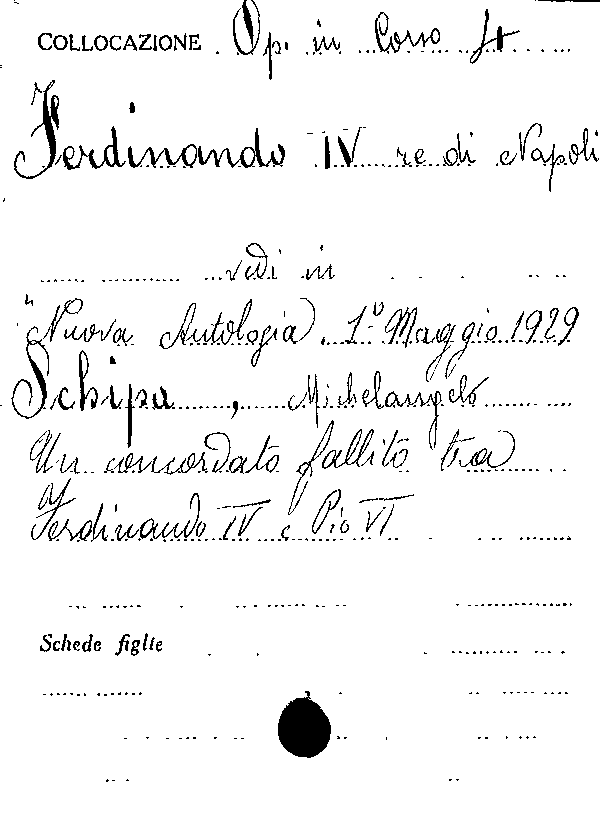 COLLOCAZIONE Op. in Corso 4
Ferdinando IV re di Napoli
vedi in
"Nuova Antologia, 1º Maggio 1929
Schipa, Michelangelo
Un concordato fallito tra
Ferdinando IV e Pio VI
Schede figlie